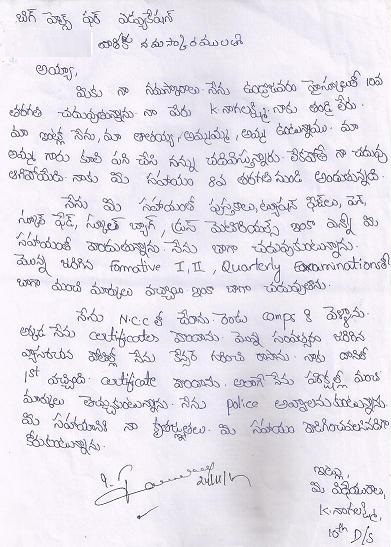 బిగ్ హెల్ప్ ఫర్ ఎడ్యుకేషన్
వారికి నమస్కరములతో
అయ్యా,
మీకు నా నమస్కారాలు. నేను ఉండ్రాజవరం హైస్కూలులో 10వ
తరగతి చదువుతున్నాను. నా పేరు K.నాగలక్ష్మి. నాకు తండ్రి లేరు.
మా ఇంట్లో నేను, మా తాతయ్య, అమ్మమ్మ, అమ్మ ఉంటున్నాము. మా
అమ్మ గారు కూలి పని చేసి నన్ను చదివిస్తున్నారు. లేకపోతే నా చదువు
ఆగిపోయేది. నాకు మీ సహాయం 8వ తరగతి నుండి అందుతున్నది.
నేను మీ సహాయంతో పుస్తకాలు, ట్యూషన్ ఫీజులు,
స్కూల్ ఫీజ్, స్కూల్ బ్యాగ్, మెటీరియల్స్ ఇంకా ఎన్నో మీ
సహాయంతో పొందుతున్నాను. నేను బాగా చదువుకుంటున్నాను.
మొన్న జరిగిన Formative I, II, Quarterly Examinationలో
బాగా మంచి మార్కులు వచ్చాయి ఇంకా బాగా చదువుతాను.
నేను N.C.C లో చేరాను. రెండు camps కి వెళ్ళాను.
అక్కడ నేను certificates పొందాను. మొన్న సందర్భంగా జరిగిన
వ్యాసరచన పోటీల్లో నేను గురించి రాసాను. నాకు దానిలో
1st వచ్చింది. certificate పొందాను. అలాగే నేను పరీక్షల్లో మంచి
మార్కులు తెచ్చుకుంటున్నాను. నేను police అవ్వాలనుకుంటున్నాను.
మీ సహాయానికి నా కృతజ్ఞతలు. మీ సహాయం కొనసాగించవలసినదిగా
కోరుకుంటున్నాను.
ఇట్లు,
మీ విధేయురాలు,
K.నాగలక్ష్మి,
10th D/S